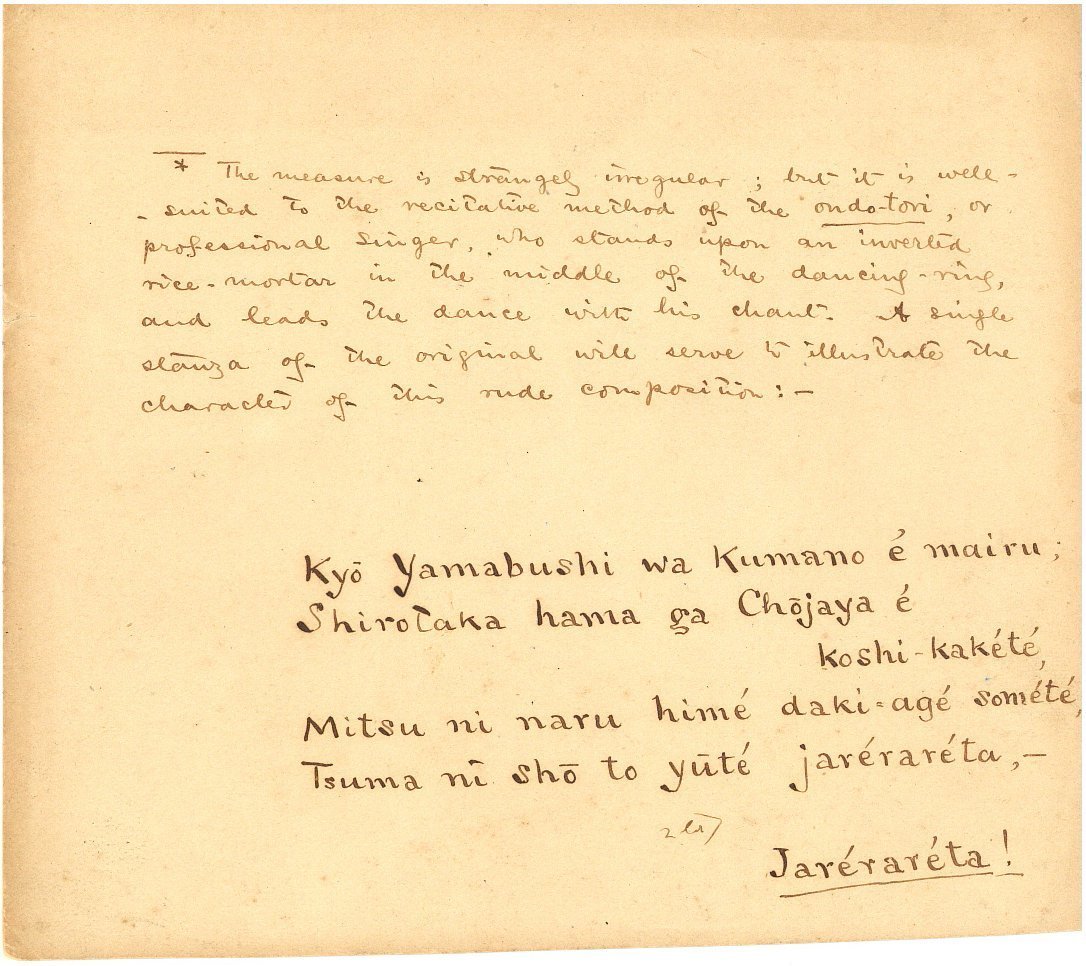 * The measure is strangely irregular ; but it is well-
- suited to the recitative method of the ondo-tori, or
professional singer, who stands upon an inverted
rice-mortar in the middle of the dancing-ring,
and leads the dance with his chant. A single
stanza of the original will serve to illustrate the
character of this rude composition : —
Kyō Yamabushi wa Kumano é mairu ;
Shirotaka hama ga Chōjaya é
koshi-kakété,
Mitsu ni naru himé daki-agé somété,
Tsuma ni shō to yūté jaréraréta, —
Jaréraréta !